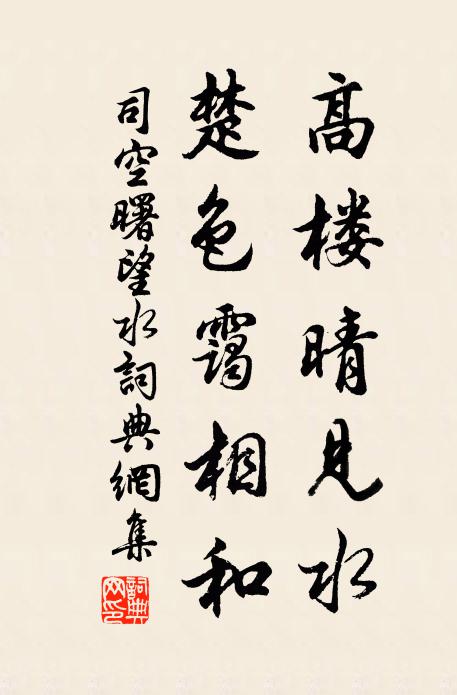 高楼晴見水
楚色靄相和
司空曙望水詞典網集
詞典网印